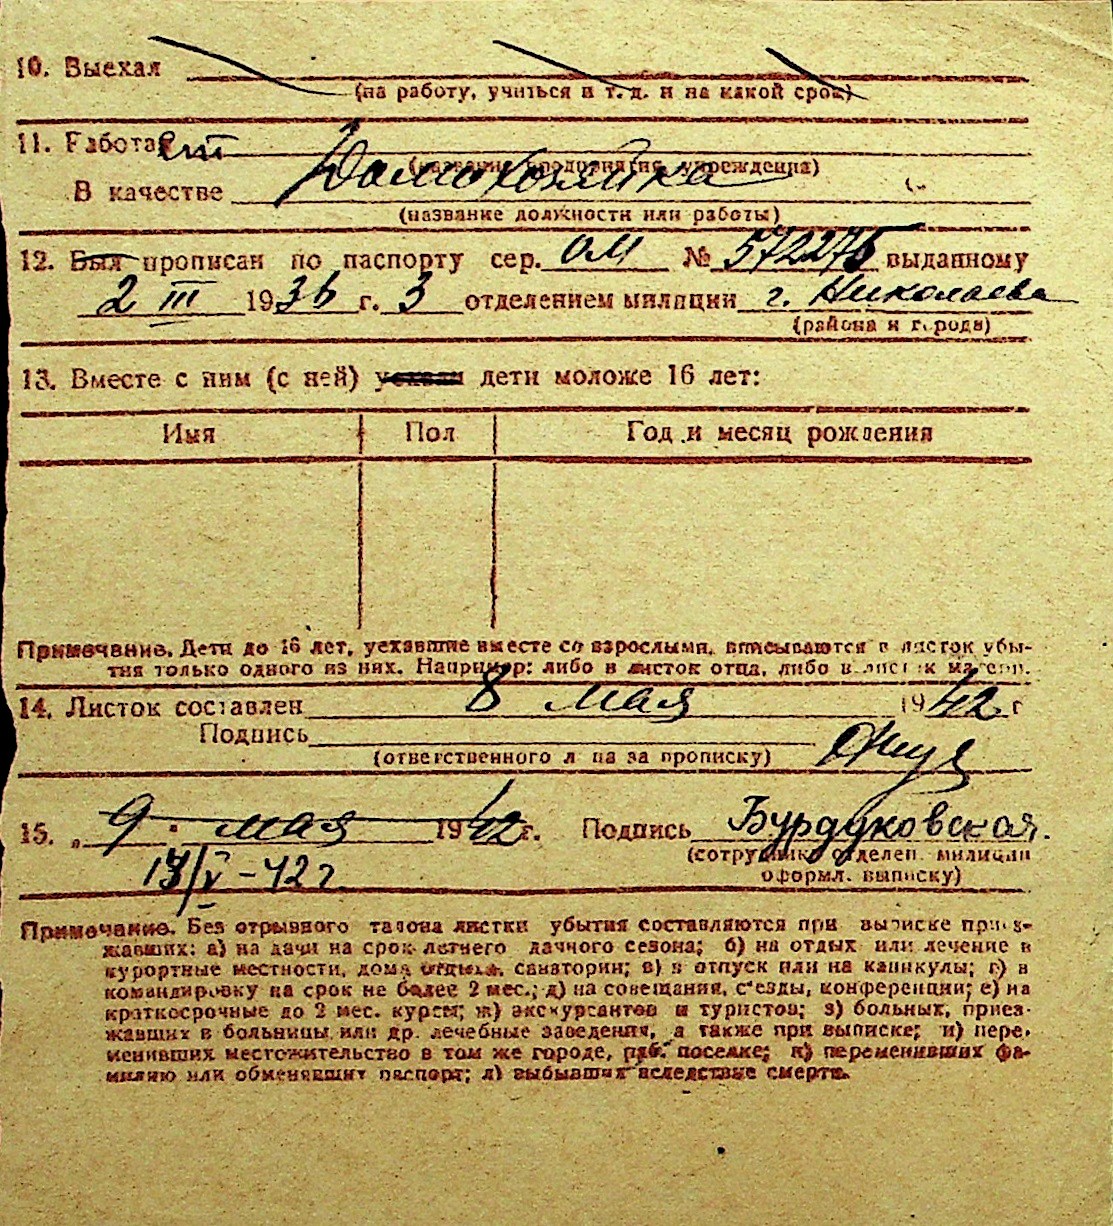 10. Выехал
(на работу, учиться и т. д. и на какой срок)
11. Работает
(название предприятия, учреждения)
В качестве Домохозяйка
(название должности или работы)
12. Был прописан по паспорту сер. ОМ № 572275 выданному
2 III 1936 г. 3 отделением милиции г. Николаева
(района и города)
13. Вместе с ним (с ней) уехали дети моложе 16 лет:
Имя Пол Год и месяц рождения
Примечание. Дети до 16 лет, уехавшие вместе со взрослыми, вписываются в листок убы-
тия только одного из них. Например: либо в листок отца, либо в листок матери.
14. Листок составлен 8 мая 1942 г
Подпись
(ответственного лица за прописку)
15. „ 9 " мая 1942 г. Подпись Бурдуковская.
(сотрудника отделен. милиции
17/V – 42 г. оформл. выписку)
Примечание. Без отрывного талона листки убытия составляются при выписке приез-
жавших: а) на дачи на срок летнего дачного сезона; б) на отдых или лечение в
курортные местности, дома отдыха, санатории; в) в отпуск или на каникулы; г) в
командировку на срок не более 2 мес.; д) на совещания, с'езды, конференции; е) на
краткосрочные до 2 мес. курсы; ж) экскурсантов и туристов; з) больных, приез-
жавших в больницы или др. лечебные заведения, а также при выписке; и) пере-
менивших местожительство в том же городе, раб. поселке; к) переменивших фа-
милию или обменявших паспорт; л) выбывших вследствие смерти.